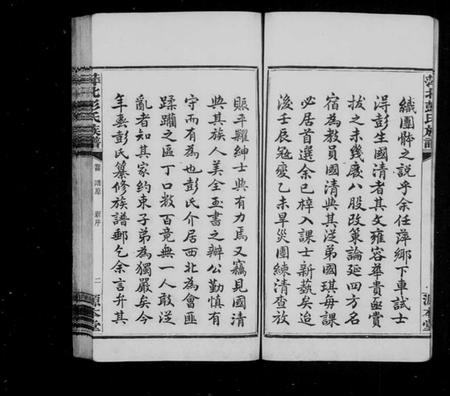 萍北彭氏族譜
織團體之說乎余任萍鄉下車試士
得彭生國清者其文雍容華貴亟賞
拔之未幾廢八股改策論延四方名
宿為教員國清與其從弟國琪每課
必居首選余已梓入課士新藝矣迨
後壬辰寇變乙未旱災團練清查放
賑平糶紳士與有力焉又竊見國清
與其族人美全孟書之辦公勤慎有
守而有為也彭氏介居西北為會匪
蹂躪之區丁口數百竟無一人敢從
亂者知其家約束子弟為獨嚴矣今
年春彭氏纂修族譜郵乞余言弁其
萍北彭氏族譜
源本堂
二